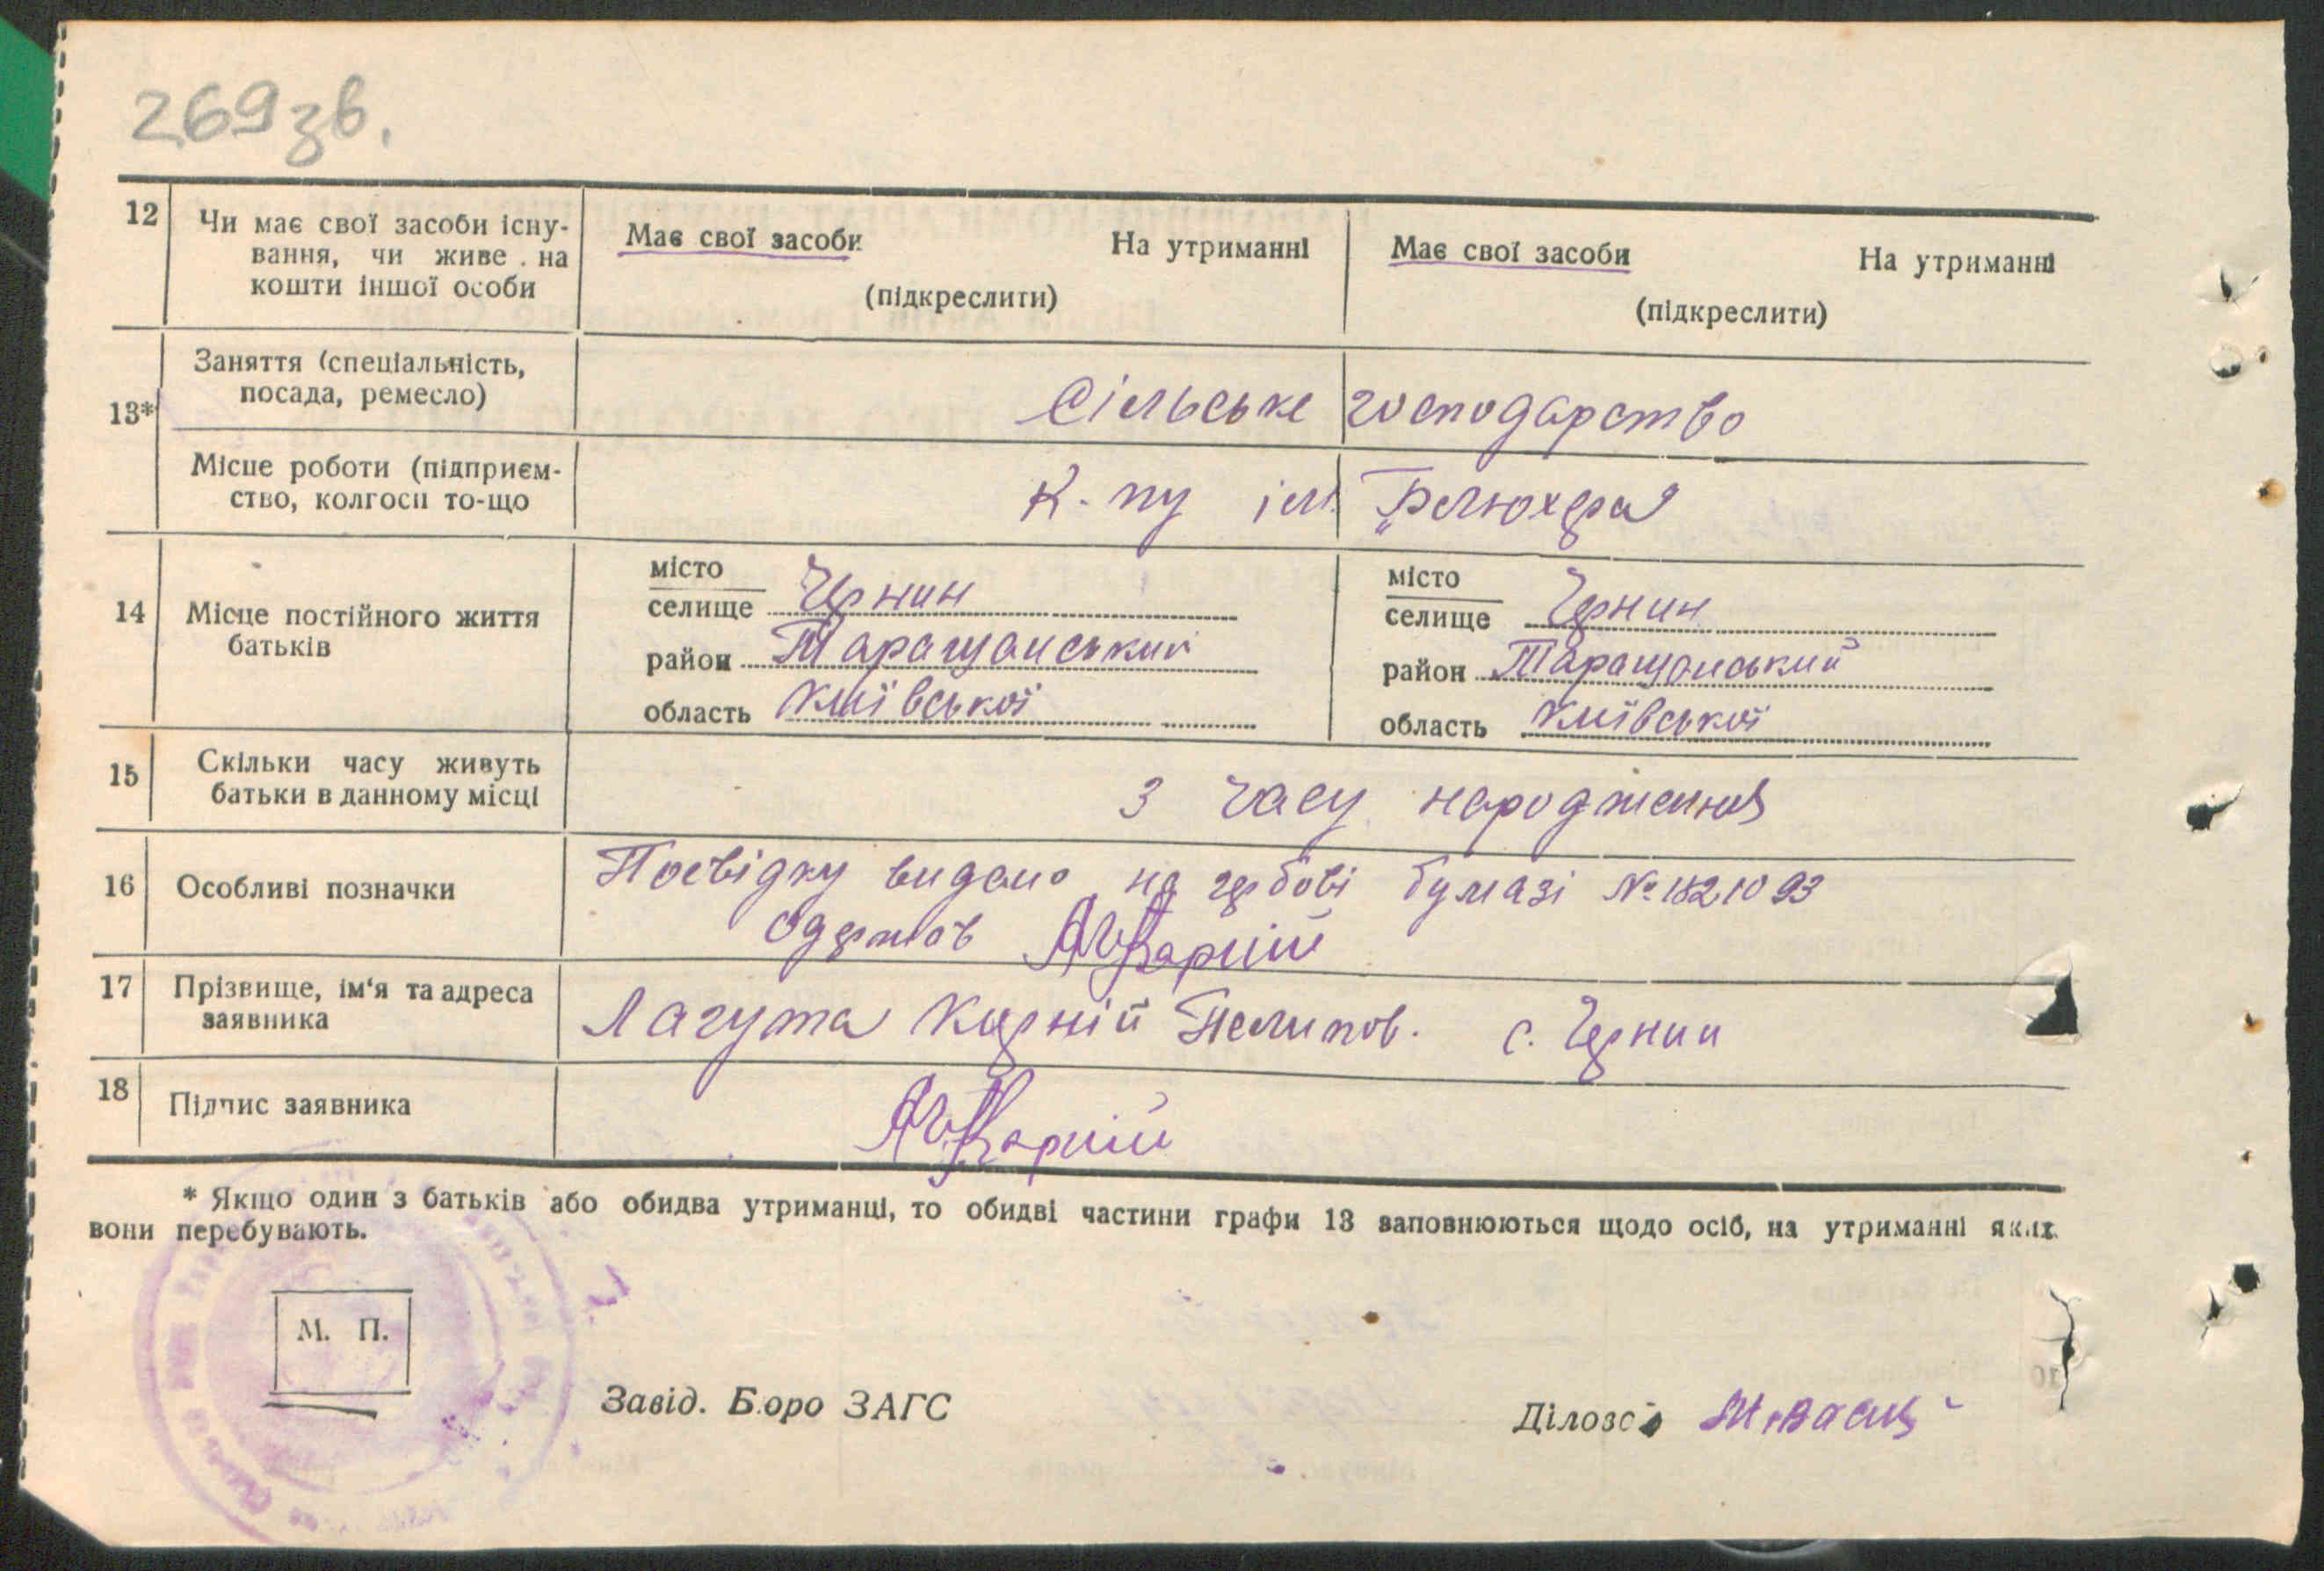 269 зв.
12 Чи має свої засоби існу-
вання, чи живе на
кошти іншої особи
Має свої засоби На утриманні Має свої засоби На утриманні
(підкреслити) (підкреслити)
13* Заняття (спеціальність,
посада, ремесло)
Сільське господарство
Місце роботи (підприєм-
ство, колгосп то-що
К-пу ім. „Блюхера"
14 Місце постійного життя
батьків
місто
селище Чернин
район Таращанський
область Київської
місто
селище Чернин
район Таращанський
область Київської
15 Скільки часу живуть
батьки в данному місці
З часу народження
16 Особливі позначки
Посвідку видано на гербові бумазі № 1821093
Одержав
17 Прізвище, ім'я та адреса
заявника
Лагута Корній Пелипов. с. Чернин
18 Підпис заявника
* Якщо один з батьків або обидва утриманці, то обидві частини графи 13 заповнюються щодо осіб, на утриманні яких
вони перебувають.
М. П.
Завід. Бюро ЗАГС
Ділово